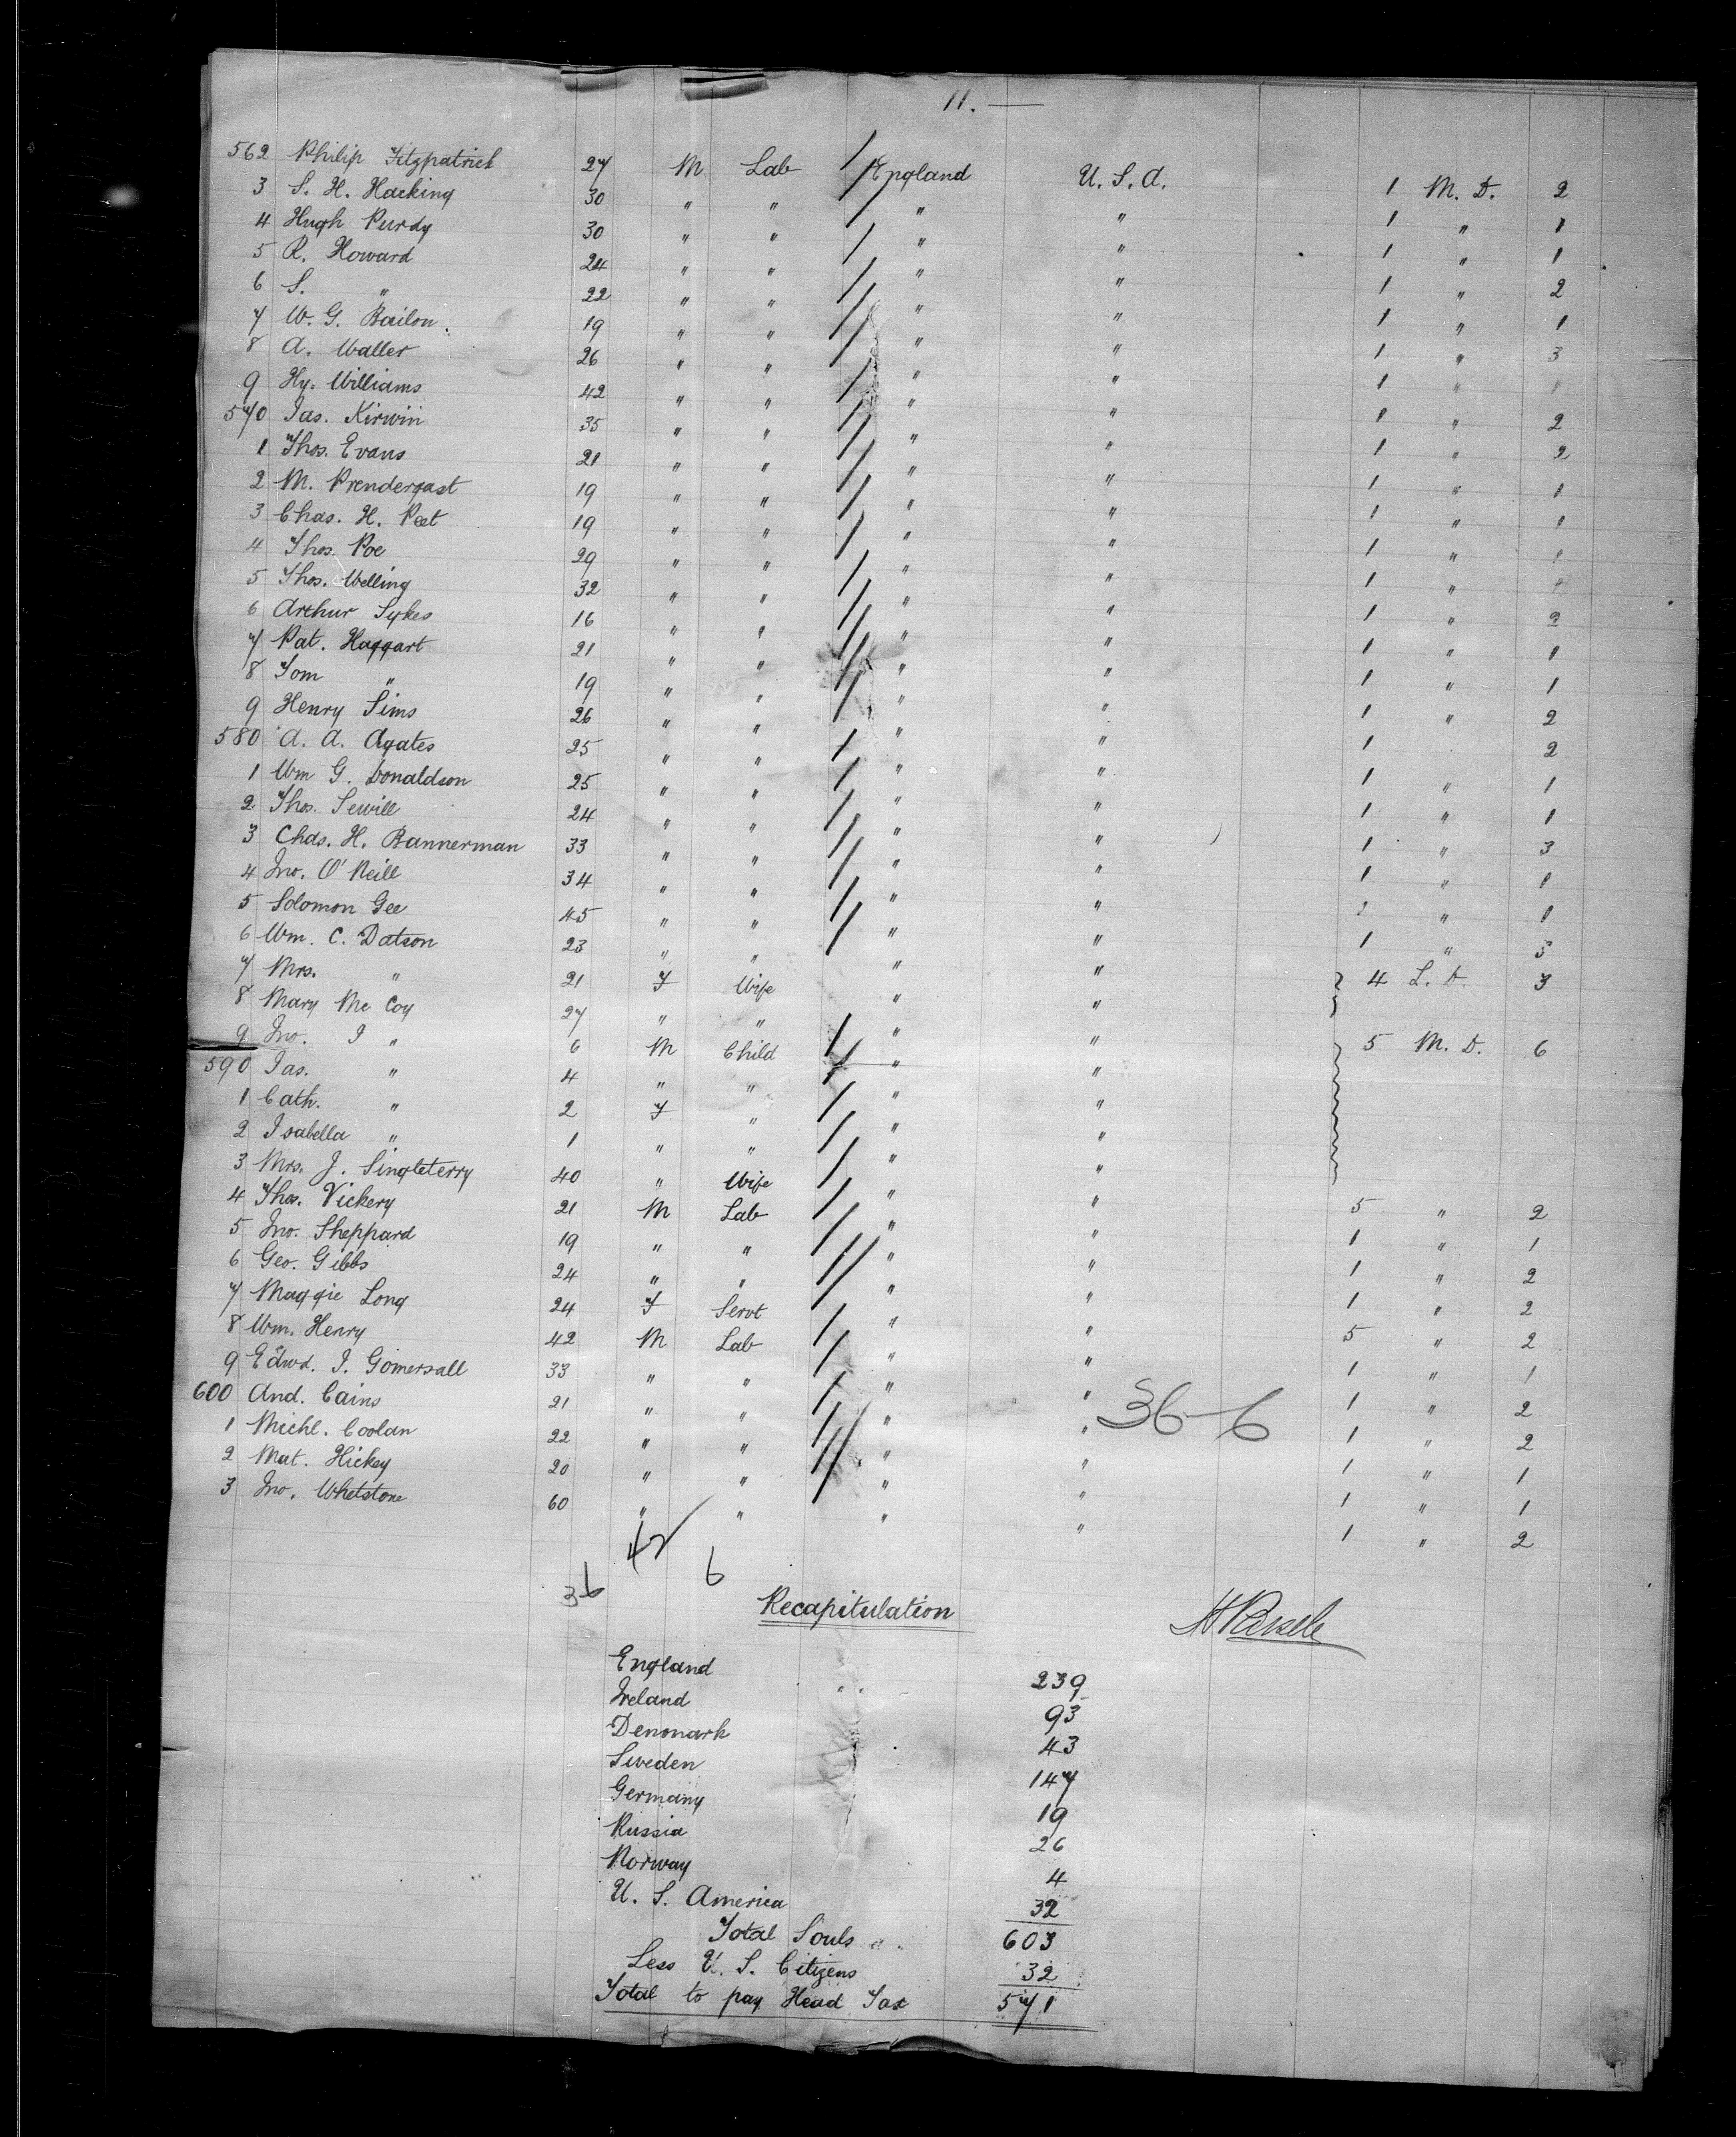 11. —
562 Philip Fitzpatrick 27 M Lab England U. S. A. 1 M. D. 2
3 S. H. Hacking 30 " " " " 1 " 1
4 Hugh Purdy 30 " " " " 1 " 1
5 R. Howard 24 " " " " 1 " 2
6 S. " 22 " " " " 1 " 1
7 W. G. Bailon 19 " " " " 1 " 3
8 A. Waller 26 " " " " 1 " 1
9 Hy. Williams 42 " " " " 1 " 2
570 Jas. Kirwin 35 " " " " 1 " 2
1 Thos. Evans 21 " " " " 1 " 1
2 M. Prendergast 19 " " " " 1 " 1
3 Chas. H. Peet 19 " " " " 1 " 1
4 Thos. Poe 29 " " " " 1 "
5 Thos. Welling 32 " " " " 1 " 2
6 Arthur Sykes 16 " " " " 1 " 1
7 Pat. Haggart 21 " " " " 1 " 1
8 Tom " 19 " " " " 1 " 2
9 Henry Sims 26 " " " " 1 2
580 A. A. Agates 25 " " " " 1 " 1
1 Wm G. Donaldson 25 " " " " 1 " 1
2 Thos. Sewill 24 " " " " 1 " 3
3 Chas. H. Bannerman 33 " " " " 1 " 1
4 Jno. O'Neill 34 " " " " " 1
5 Solomon Gee 45 " " " " 1 " 3
6 Wm. C. Datson 23 " " " " 4 L. D. 3
7 Mrs. " 21 F Wife " "
8 Mary Mc Coy 27 " " " " 5 M. D. 6
9 Jno. J " 6 M Child " "
590 Jas. " 4 " " " "
1 Cath. " 2 F " " "
2 Isabella " 1 " " " "
3 Mrs. J. Singleterry 40 " Wife " " 5 " 2
4 Thos. Vickery 21 M Lab " " 1 " 1
5 Jno. Sheppard 19 " " " " 1 " 2
6 Geo. Gibbs 24 " " " " 1 " 2
7 Maggie Long 24 F Servt " " 5 " 2
8 Wm. Henry 42 M Lab " " 1 " 1
9 Edwd. J. Gomersall 33 " " " " 1 " 2
600 And. Cains 21 " " " " 1 " 2
1 Michl. Coolan 22 " " " " 1 " 1
2 Mat. Hickey 20 " " " " 1 " 1
3 Jno. Whetstone 60 " " " " 1 " 2
36-6
42
36 6
Recapitulation
England 239
Ireland 93
Denmark 43
Sweden 147
Germany 19
Russia 26
Norway 4
U. S. America 32
Total Souls 603
Less U. S. Citizens 32
Total to pay Head Tax 571